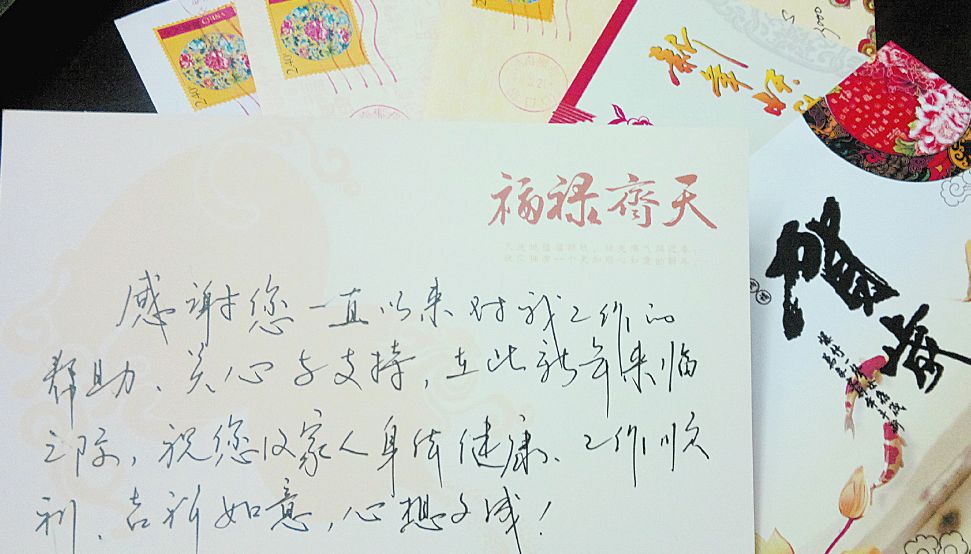 CHINA
2.40
2.40
新年好
福禄齊天
贺岁
感谢您一直以来对我工作的
帮助、关心与支持,在此新年来临
之际,祝您及家人身体健康、工作顺
利、吉祥如意,心想事成!